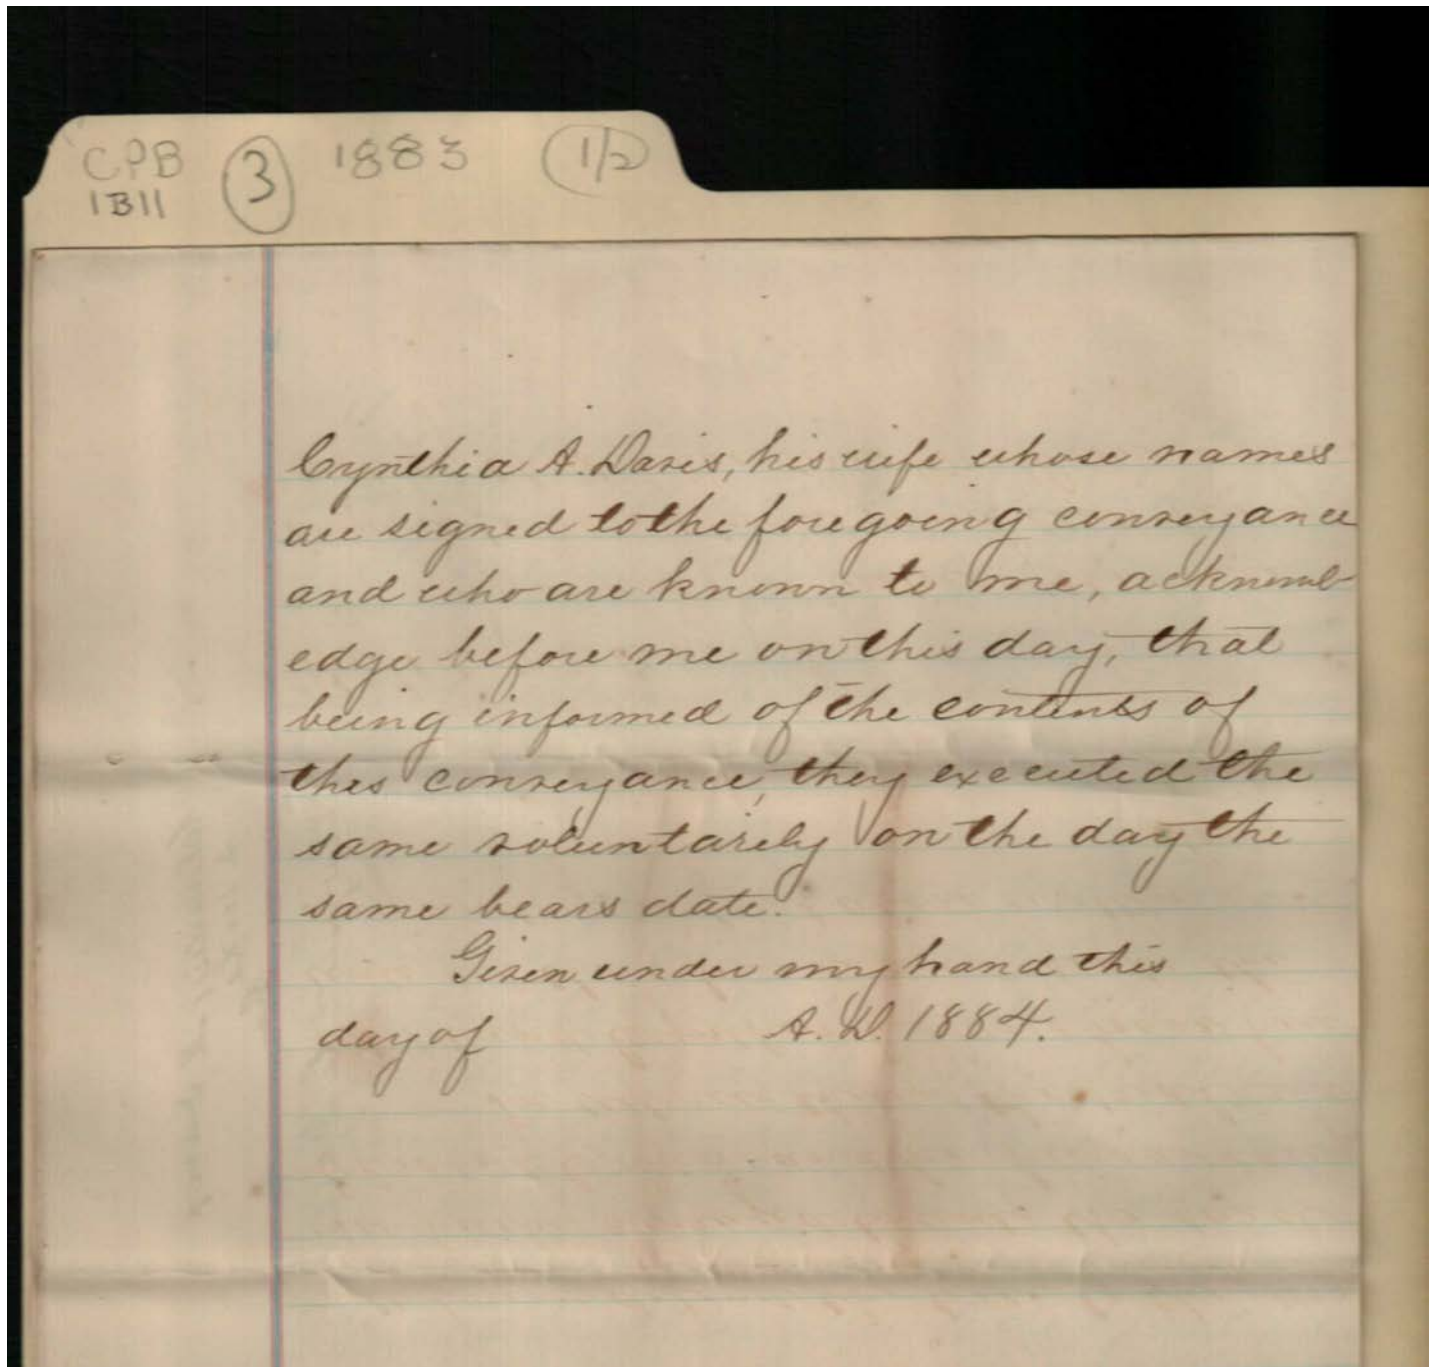 CPB 3 1883 1/2
1B11
Cynthia A. Davis, his wife whose names
are signed to the foregoing conveyance
and who are known to me, acknowl-
edge before me on this day, that
being informed of the contents of
this conveyance, they executed the
same voluntarily on the day the
same bears date.
Given under my hand this
day of A.D. 1884.